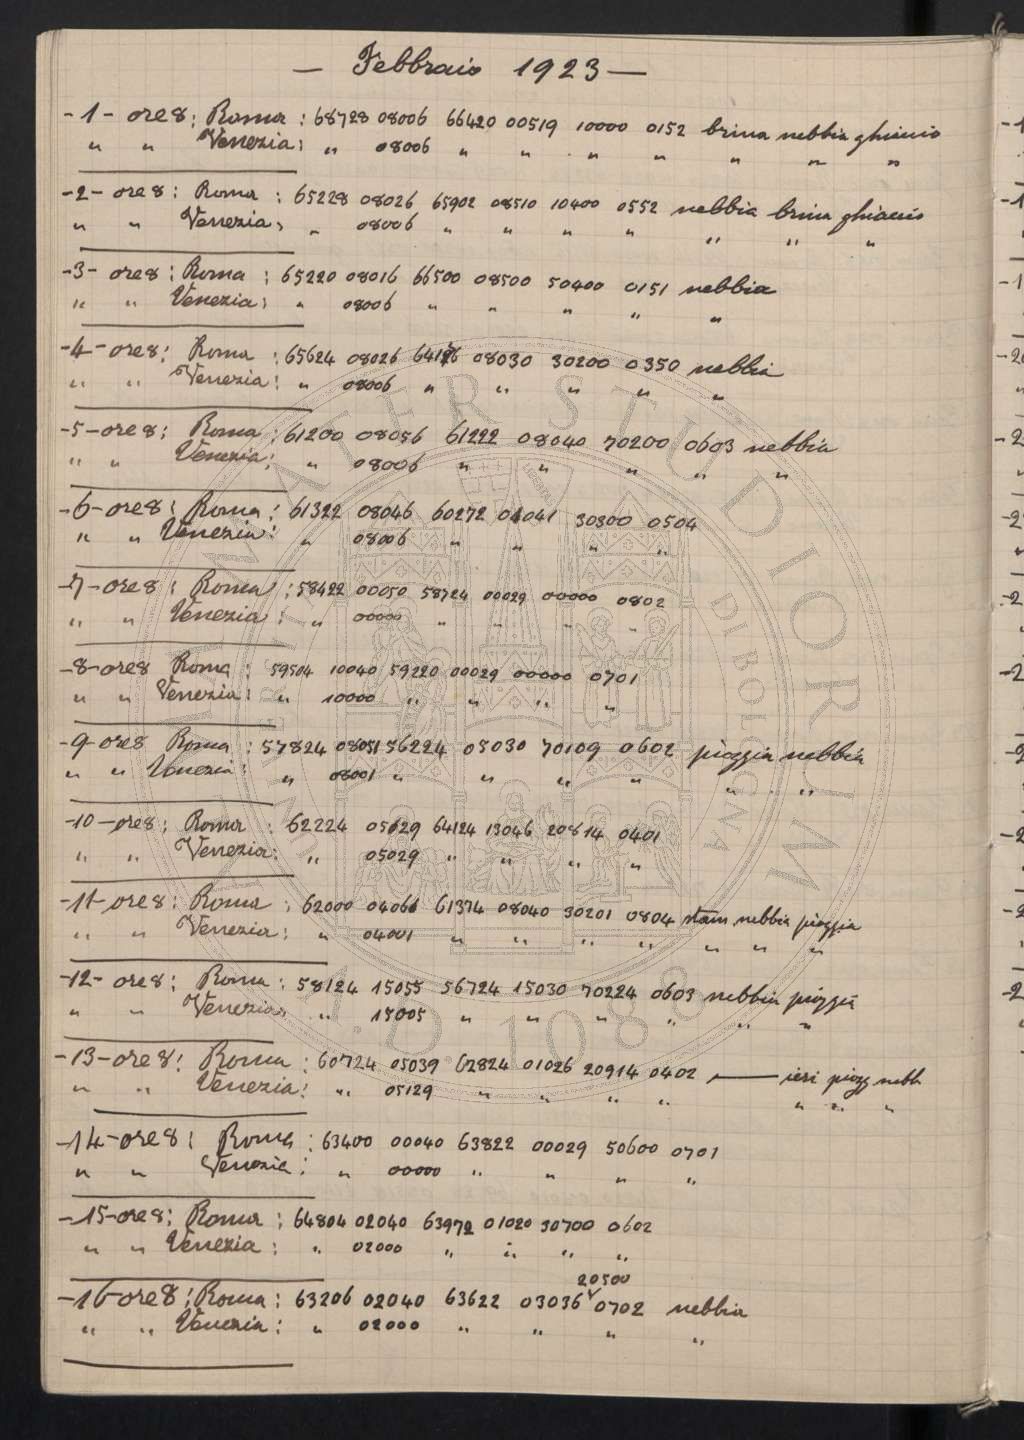 — Febbraio 1923 —
- 1 - ore 8: Roma : 68728 08006 66420 00519 10000 0152 brina nebbia ghiaccio
" " Venezia: " 08006 " " " " " " "
- 2 - ore 8: Roma : 65228 08026 65902 08510 10400 0552 nebbia brina ghiaccio
" " Venezia: " 08006 " " " " " " "
- 3 - ore 8: Roma : 65220 08016 66500 08500 50400 0151 nebbia
" " Venezia: " 08006 " " " " "
- 4 - ore 8: Roma : 65624 08026 08030 30200 0350 nebbia
" " Venezia: " 08006 " " " " "
- 5 - ore 8: Roma : 61200 08056 61222 08040 70200 0603 nebbia
" " Venezia: " 08006 " " " " "
- 6 - ore 8: Roma : 61322 08046 60272 01041 30300 0504
" " Venezia: " 08006 " " " "
- 7 - ore 8: Roma : 58422 00050 58724 00029 00000 0802
" " Venezia: " 00000 " " " "
- 8 - ore 8 Roma : 59504 10040 59220 00029 00000 0701
" " Venezia: " 10000 " " " "
- 9 - ore 8 Roma : 57824 08051 56224 05030 70109 0602 pioggia nebbia
" " Venezia: " 08001 " " " " " " "
- 10 - ore 8: Roma : 62224 05029 64124 13046 20814 0401
" " Venezia: " 05029 " " " "
- 11 - ore 8: Roma : 62000 04061 61374 08040 30201 0804 stam nebbia pioggia
" " Venezia: " 04001 " " " " " " "
- 12 - ore 8: Roma : 58124 15055 56724 15030 70224 0603 nebbia pioggia
" " Venezia: " 15005 " " " " " "
- 13 - ore 8: Roma : 60724 05039 62824 01026 20914 0402 — ieri piogg nebb
" " Venezia: " 05129 " " " " " " "
- 14 - ore 8: Roma : 63400 00040 63822 00029 50600 0701
" " Venezia: " 00000 " " " "
- 15 - ore 8: Roma : 64804 02040 63972 01020 30700 0602
" " Venezia: " 02000 " " " "
20500
- 16 - ore 8: Roma : 63206 02040 63622 03036 0702 nebbia
" " Venezia: " 02000 " " " "
ALMA MATER STUDIORUM
A.D. 1088
DI BOLOGNA